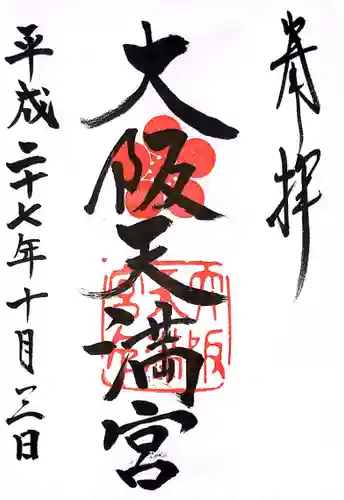 奉拝
大阪天満宮
平成二十七年十月三日